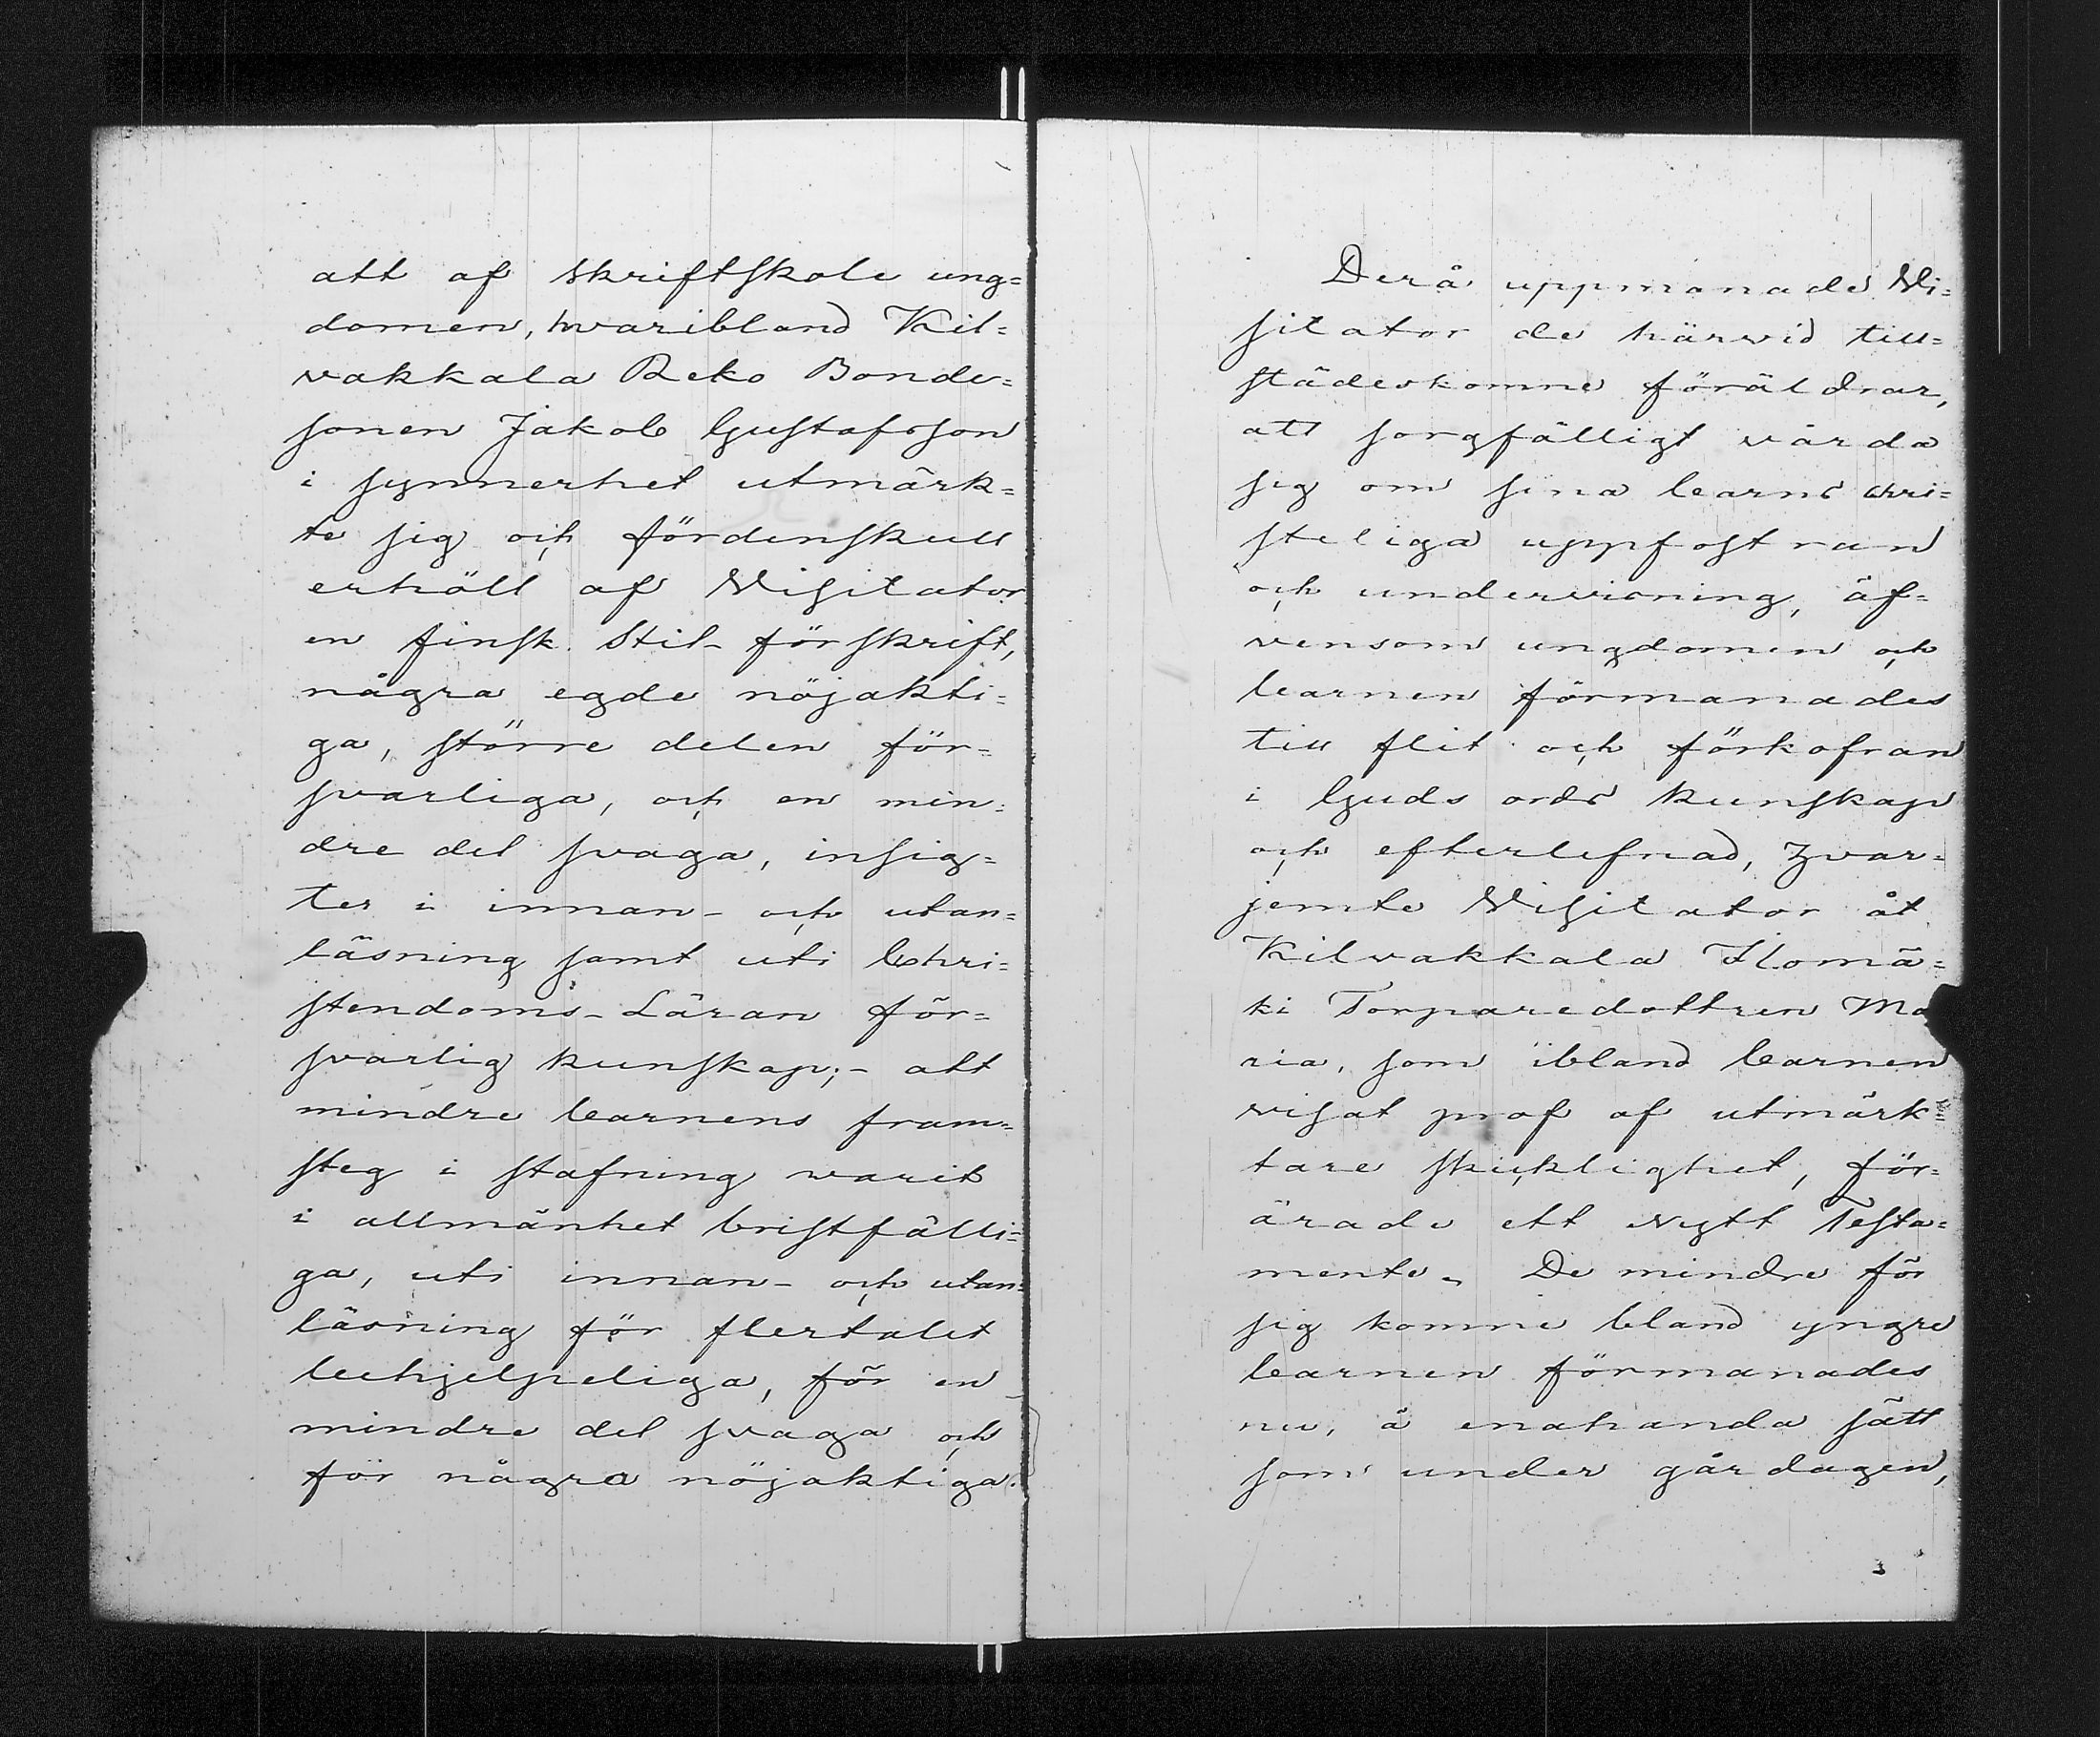 att af skriftskole ung=
domen, hvaribland Kil=
vakkala Reko Bonde=
sonen Jakob Gustafsson
i synnerhet utmärk=
te sig och fördenskull
erhöll af Visitator
en finsk Stil-förskrift,
några egde nöjakti=
ga, större delen för=
svarliga, och en min=
dre del svaga, insig=
ter i innan- och utan=
läsning samt uti Chri=
stendoms-Läran för=
svarlig kunskap; - att
mindre barnens fram=
steg i stafning varit
i allmänhet bristfälli=
ga, uti innan- och utan=
läsning för flertalet
behjelpeliga, för en
mindre del svaga och
för några nöjaktiga.
Derå uppmanade Vi=
sitator de härvid till=
städeskomne föräldrar,
att sorgfälligt vårda
sig om sina barns chri=
steliga uppfostran
och undervisning, äf=
vensom ungdomen och
barnen förmanades
till flit och förkofran
i Guds ords kunskap
och efterlefnad, hvar=
jemte Visitator åt
Kilvakkala Ilomä=
ki Torparedottren Ma
ria, som ibland barnen
visat prof af utmärk=
tare skicklighet, för=
ärade ett Nytt Testa=
mente. De mindre för
sig komne bland yngre
barnen förmanades
nu, å enahanda sätt
som under gårdagen,